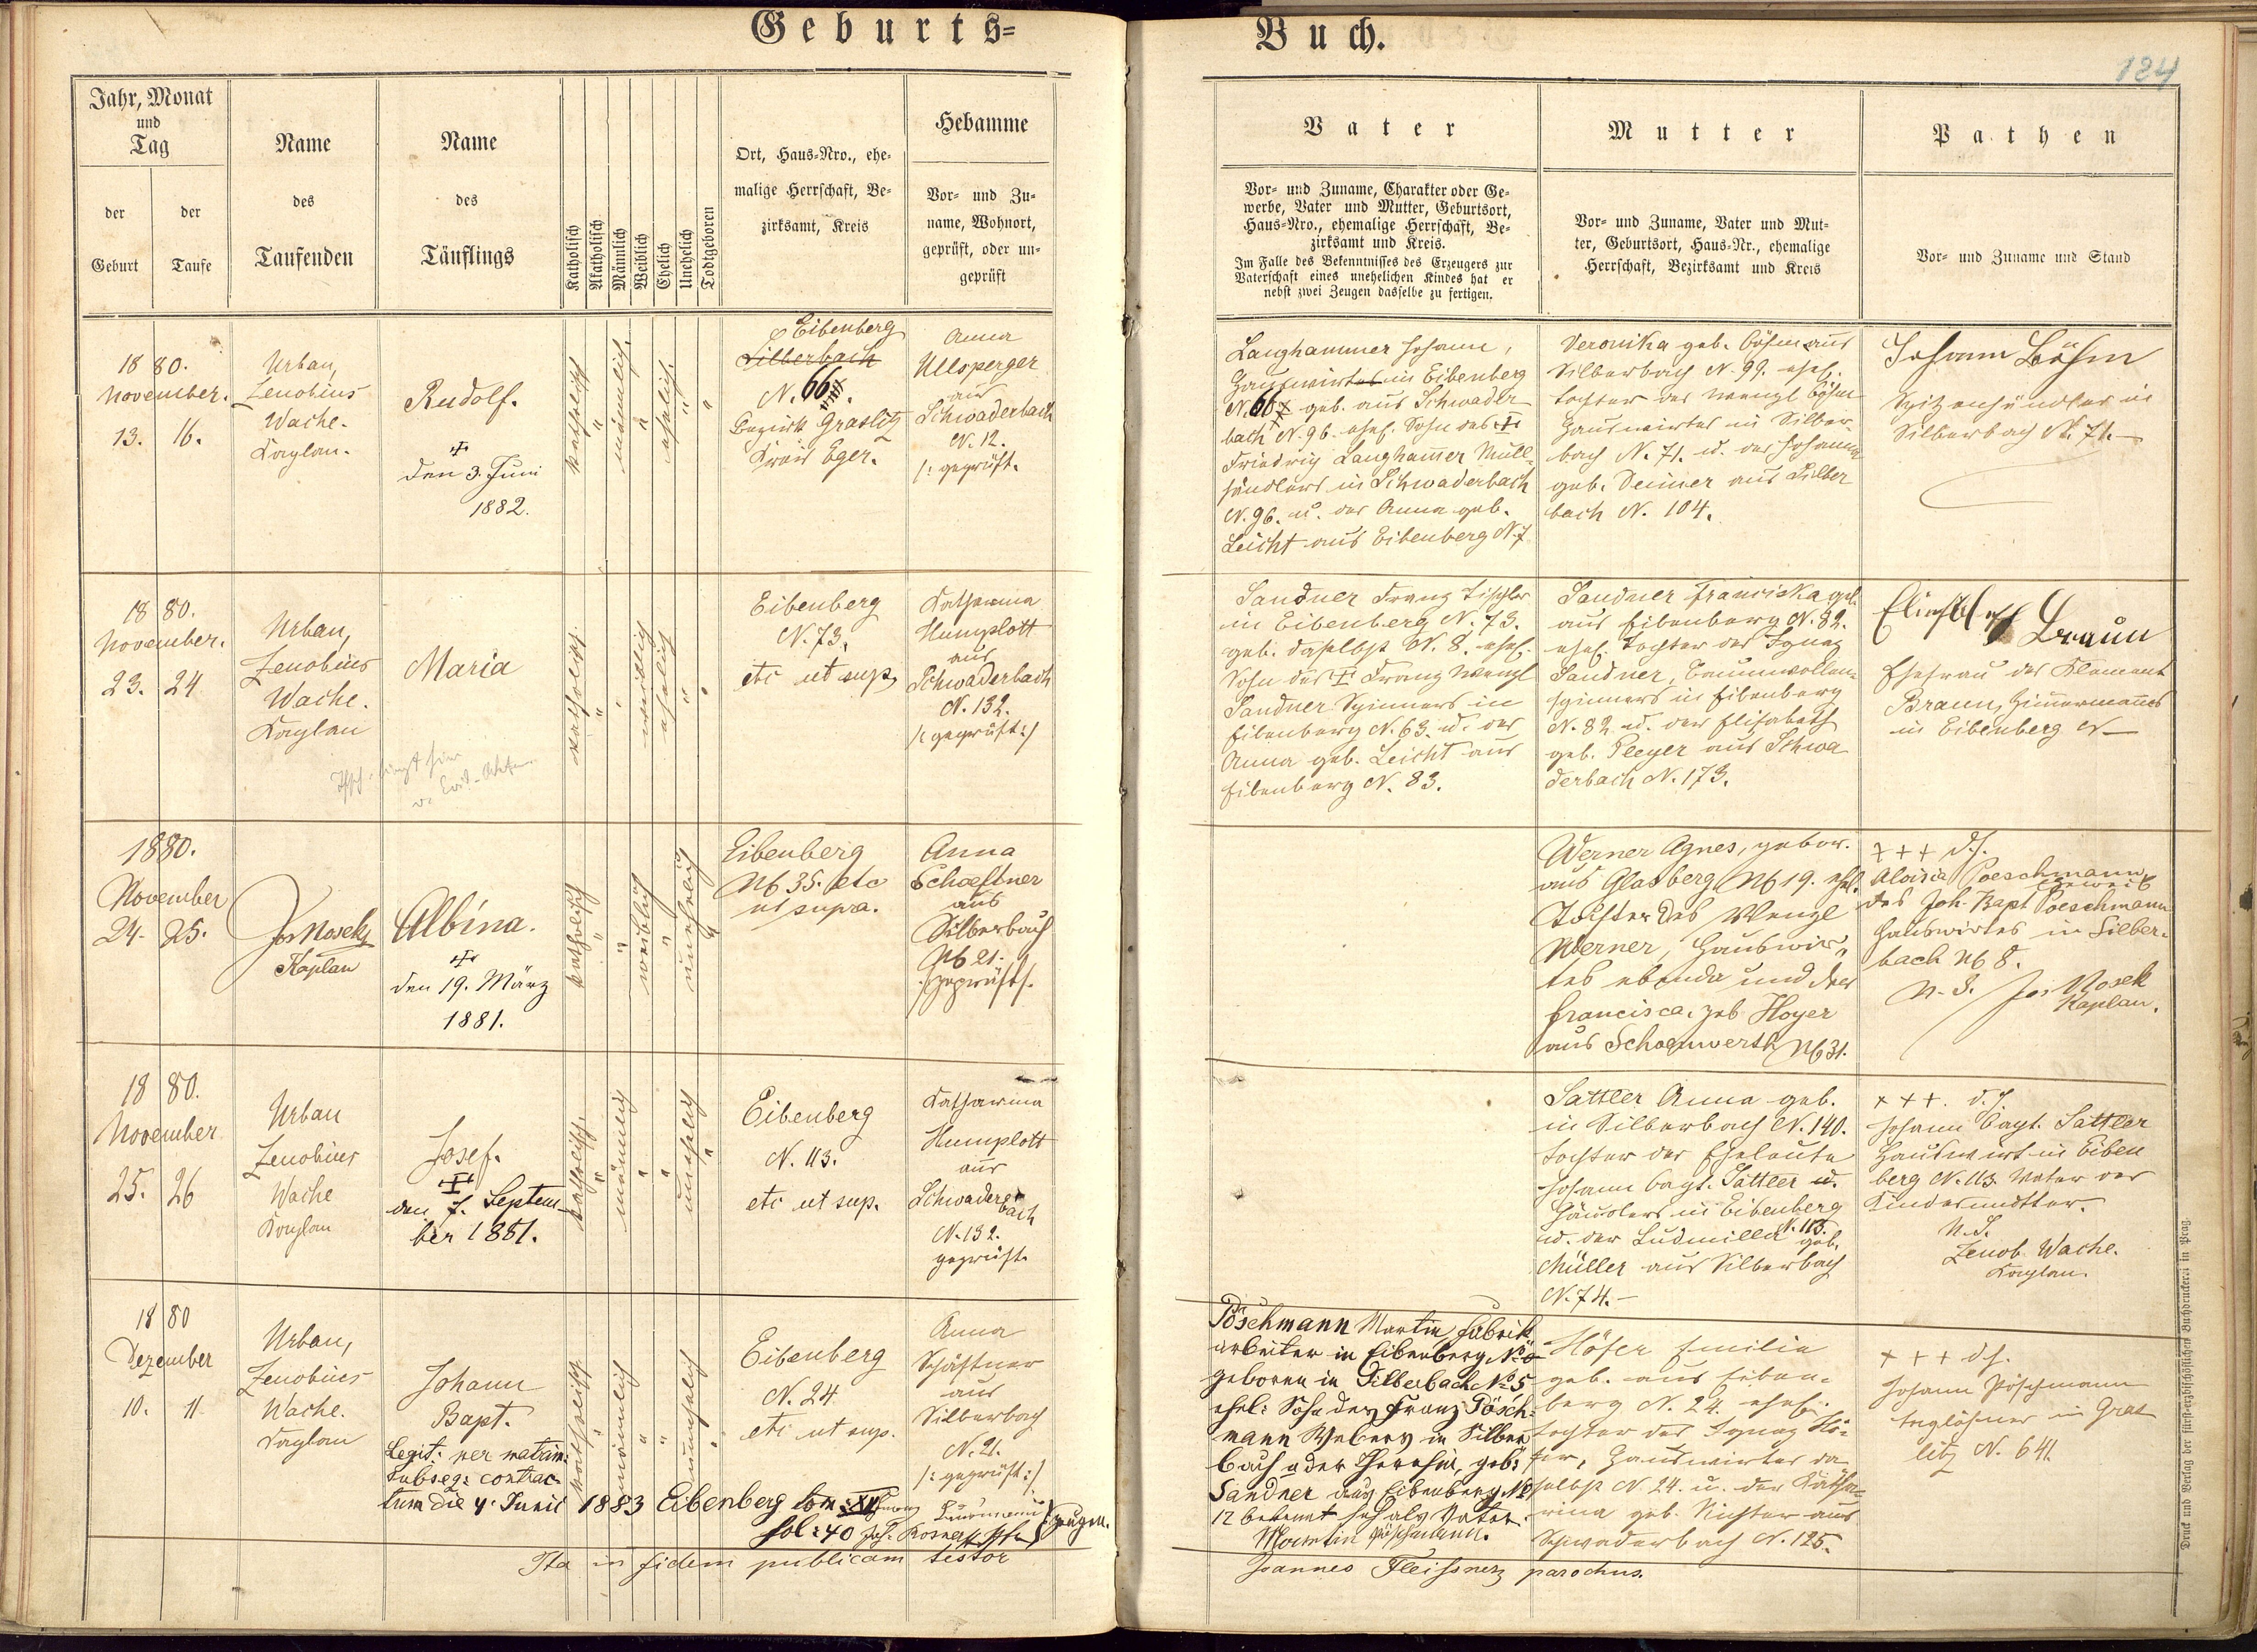 Geburts=
Buch.
124
Jahr, Monat
und
Tag
der
Geburt
der
Taufe
Name
des
Taufenden
Name
des
Täuflings
Katholisch
Akatholisch
Männlich
Weiblich
Ehelich
Unehelich
Todtgeboren
Ort, Haus=Nro., ehe=
malige Herrschaft, Be=
zirksamt, Kreis
Hebamme
Vor= und Zu=
name, Wohnort,
geprüft, oder un=
geprüft
Vater
Vor= und Zuname, Charakter oder Ge=
werbe, Vater und Mutter, Geburtsort,
Haus=Nro., ehemalige Herrschaft, Be=
zirksamt und Kreis.
Im Falle des Bekenntnisses des Erzeugers zur
Vaterschaft eines unehelichen Kindes hat er
nebst zwei Zeugen dasselbe zu fertigen.
Mutter
Vor= und Zuname, Vater und Mut=
ter, Geburtsort, Haus=Nr., ehemalige
Herrschaft, Bezirksamt und Kreis
Pathen
Vor= und Zuname und Stand
1880.
November.
13. 16.
Urban,
Zenobius
Wache.
Kaplan.
Rudolf.
den 3. Juni
1882.
katholisch
"
männlich.
"
ehelich.
"
"
Eibenberg
Silberbach
N. 66.
Bezirk Graslitz
Kreis Eger.
Anna
Ullsperger
aus
Schwaderbach
N. 12.
/: geprüft.
Langhammer Johann,
Hauswirtes in Eibenberg
N. 66 geb. aus Schwader
bach N. 96. ehel. Sohn des
Friedrich Langhammer Müll
händlers in Schwaderbach
N. 96. u. der Anna geb.
Leicht aus Eibenberg N. 7
Veronika geb. Böhm aus
Silberbach N. 99. ehel.
Tochter des Wenzl Böhm
Hauswirtes in Silber=
bach N. 71. u. der Johanna
geb. Deimer aus Silber
bach N. 104.
Johann Böhm
Spitzenhändler in
Silberbach N. 71.
1880.
November.
23. 24
Urban,
Zenobius
Wache.
Kaplan
Maria
katholisch.
"
"
weiblich
ehelich
"
"
Eibenberg
N. 73.
etc ut sup.
Katharina
Humplott
aus
Schwaderbach
N. 132.
/: geprüft :/
Sandner Franz Tischler
in Eibenberg N. 73.
geb. daselbst N. 8. ehel.
Sohn des Franz Wenzl
Sandner Spinners in
Eibenberg N. 63. u. der
Anna geb. Leicht aus
Eibenberg N. 83.
Sandner Franziska geb.
aus Eibenberg N. 82.
ehel. Tochter des Ignaz
Sandner, Baumwollen=
spinners in Eibenberg
N. 82 u. der Elisabeth
geb. Pleyer aus Schwa
derbach N. 173.
Elisabeth Braun
Ehefrau des Klement
Braun, Zimmermannes
in Eibenberg N
1880.
November
24. 25.
Jos Nosek
Kaplan
Albina.
den 19. März
1881.
katholisch
"
"
weiblich
"
unehelich
"
Eibenberg
N 35. etc
ut supra.
Anna
Schaeftner
aus
Silberbach
N 21.
/geprüft/.
Werner Agnes, gebor.
aus Glasberg N 19. ehel.
Tochter des Wenzl
Werner, Hauswir=
tes ebenda und der
Francisca, geb Hoyer
aus Schoenwerth N 31.
+++ d.s.
Aloisia Poeschmann
Eheweib
des Joh. Bapt Poeschmann
Hauswirtes in Silber=
bach N 8.
N. S. Jos Nosek
Kaplan.
1880.
November
25. 26
Urban
Zenobius
Wache
Kaplan
Josef.
den 7. Septem=
ber 1881.
katholisch.
"
männlich
"
"
unehelich
"
Eibenberg
N. 113.
etc ut sup.
Katharina
Humplott
aus
Schwader
bach
N. 132.
geprüft.
Sattler Anna geb.
in Silberbach N. 140.
Tochter der Eheleute
Johann Bapt. Sattler u.
Häuslers in Eibenberg
N. 113.
u. der Ludmilla geb.
Müller aus Silberbach
N. 74.
+++. d.s
Johann Bapt. Sattler
Hauswirt in Eiben
berg N. 113. Vater der
Kindesmutter.
N. S.
Zenob. Wache.
Kaplan.
1880
Dezember
10. 11
Urban,
Zenobius
Wache.
Kaplan
Johann
Bapt.
Legit: per matrim:
subseq: contrac=
tum die 4. Junii 1883 Eibenberg tom: XII
fol: 40
katholisch
"
männlich
"
"
unehelich
"
Eibenberg
N. 24
etc ut sup.
Anna
Schäftner
aus
Silberbach
N. 21.
/: geprüft :/
Zeugen.
Pöschmann Martin Fabrik
arbeiter in Eibenberg No 8
geboren in Silberbach No 5
ehel: Sohn des Franz Pösch=
mann Webers in Silber
bach u der Theresia, geb:
Sandner aus Eibenberg No
12 bekennt sich als Vater.
Martin Pöschmann.
Höfer Emilie
geb. aus Eiben=
berg N. 24. ehel.
Tochter des Ignaz Hö=
fer, Hauswirtes da
selbst N. 24. u. der Katha=
rina geb. Richter aus
Schwaderbach N. 125.
+++ d.s.
Johann Pöschmann
Taglöhner in Gras
litz N. 641.
Ita in fidem publicam testor
Joannes Fleissner parochus.
Druck und Verlag der fürst=erzbischöflichen Buchdruckerei in Prag.